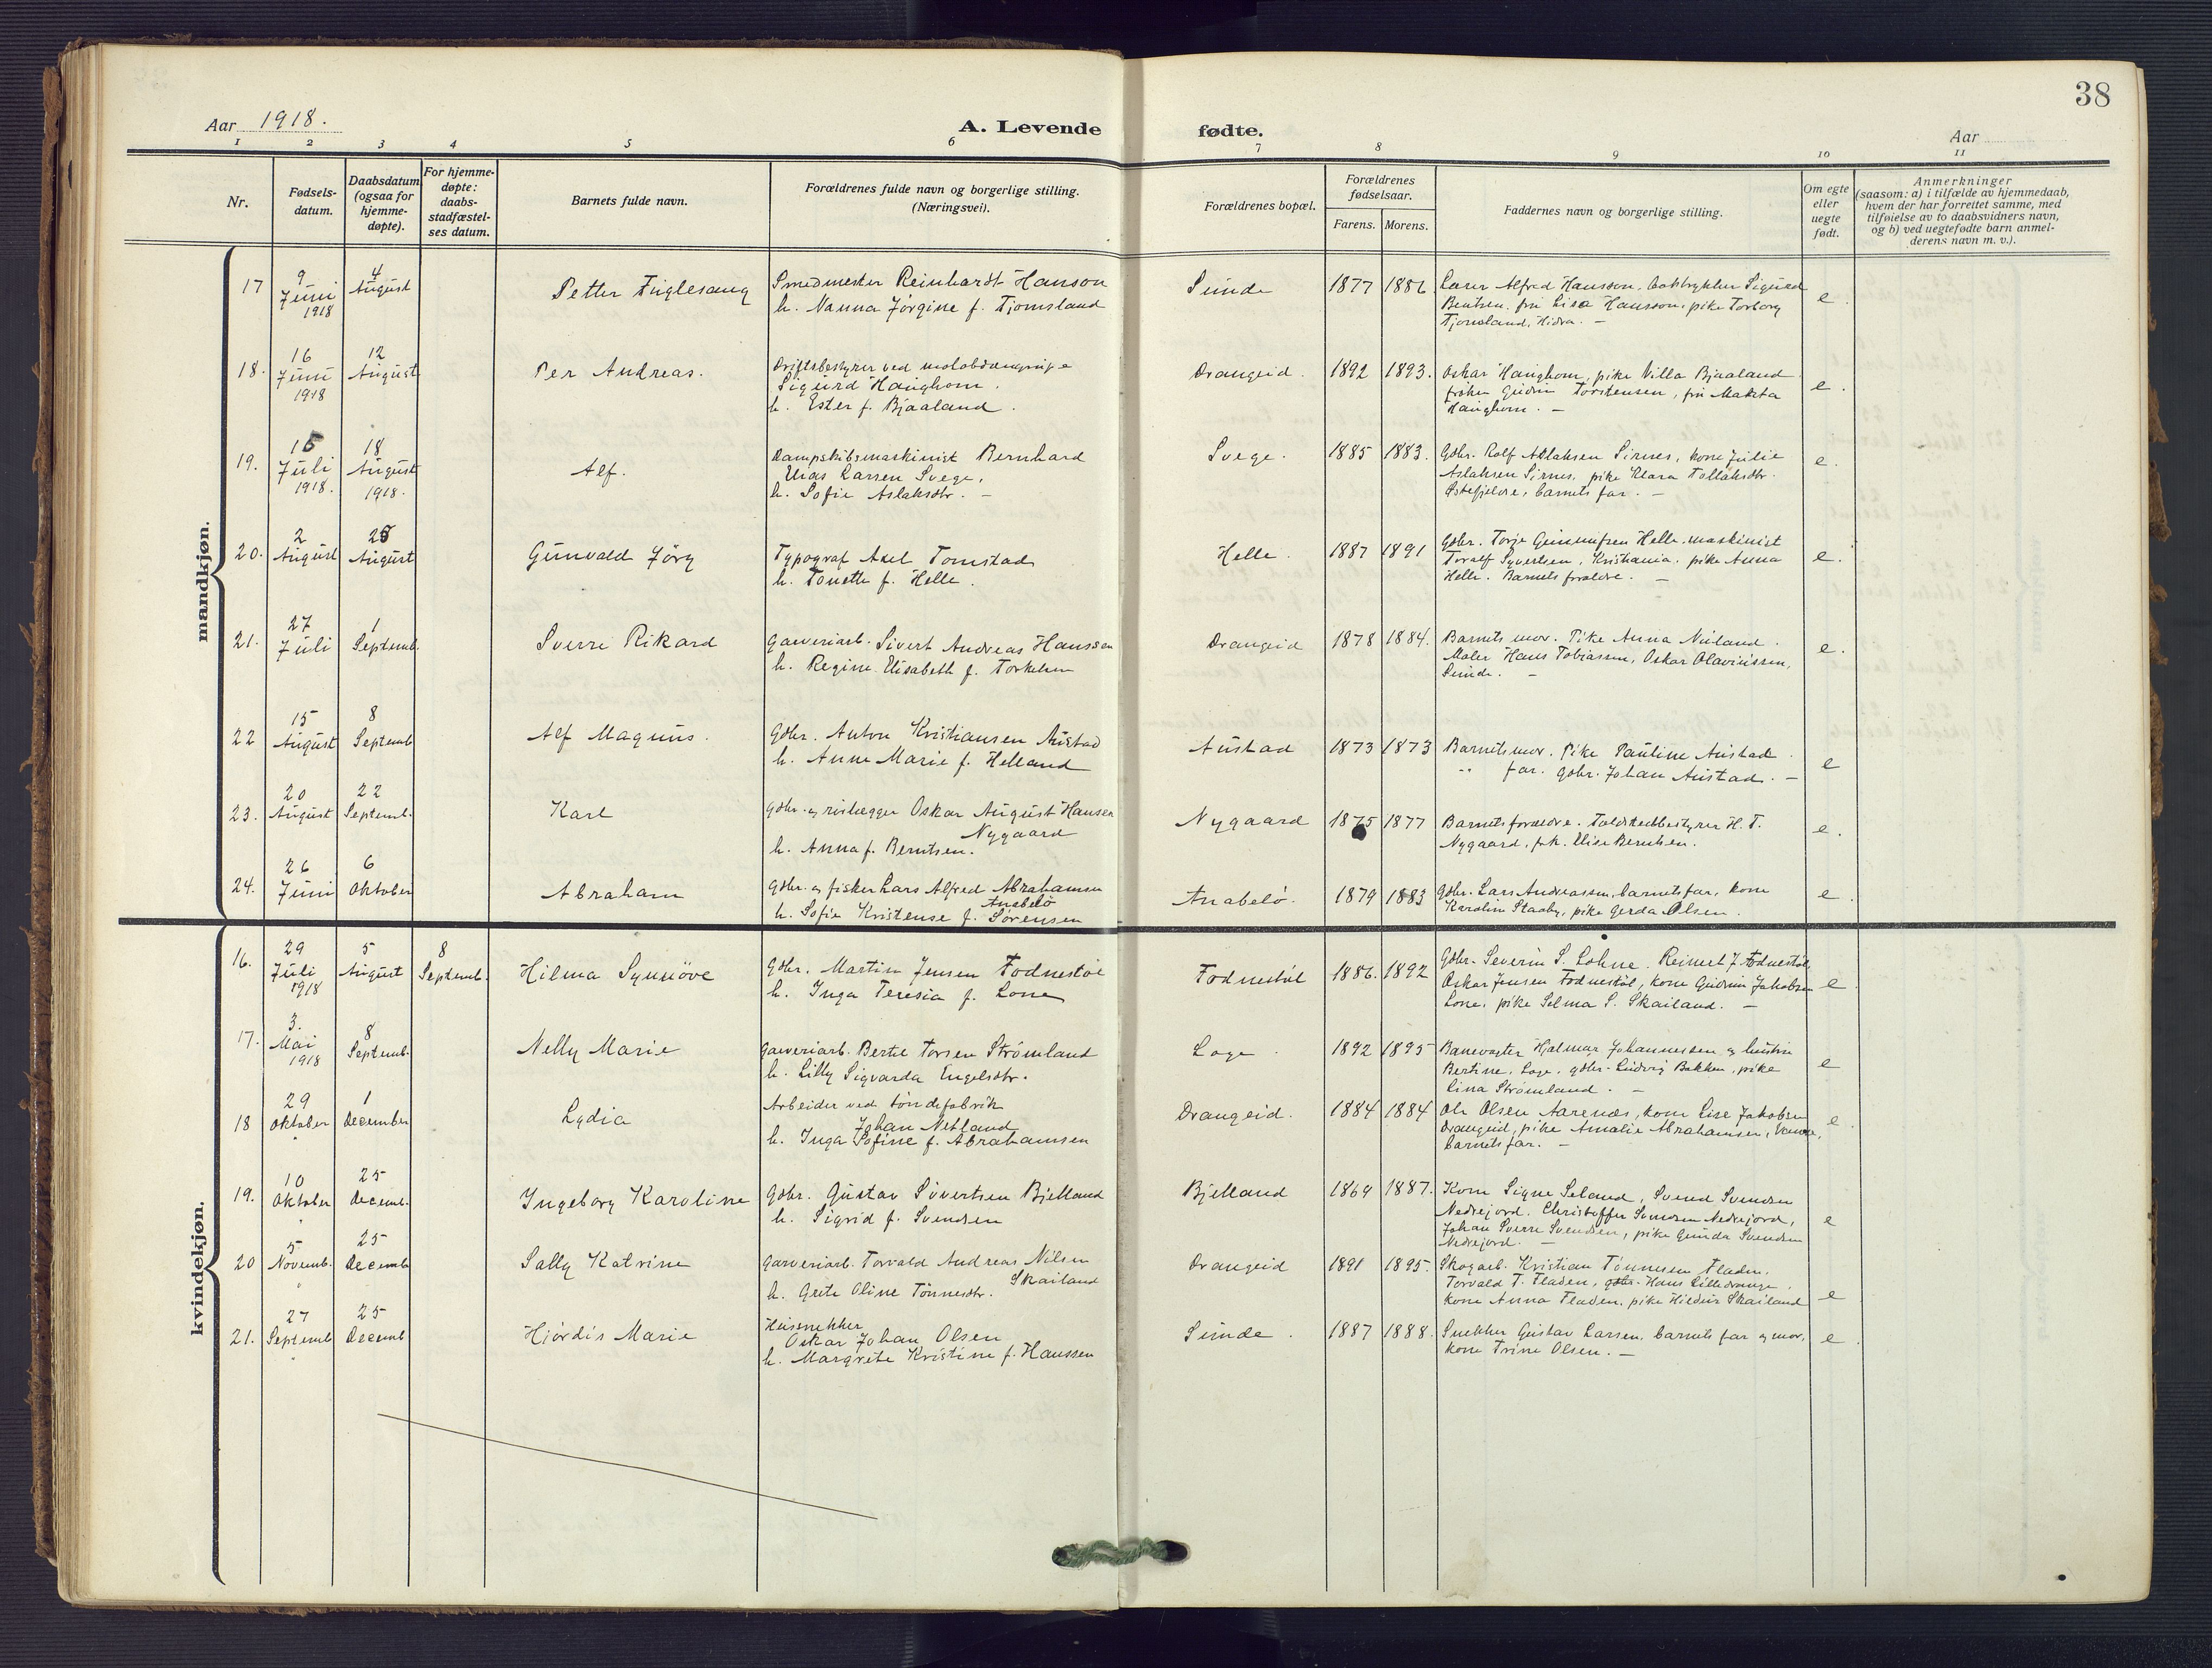 38
Aar 1918.
A. Levende fødte.
Aar
1 2 3 4 5 6 7 8 9 10 11
Nr.
Fødsels-
datum.
Daabsdatum
(ogsaa for
hjemme-
døpte).
For hjemme-
døpte:
daabs-
stadfæstel-
ses datum.
Barnets fulde navn.
Forældrenes fulde navn og borgerlige stilling.
(Næringsvei).
Forældrenes bopæl.
Forældrenes
fødselsaar.
Farens. Morens.
Faddernes navn og borgerlige stilling.
Om egte
eller
uegte
født.
Anmerkninger
(saasom: a) i tilfælde av hjemmedaab,
hvem der har forrettet samme, med
tilføielse av to daabsvidners navn,
og b) ved uegtefødte barn anmel-
derens navn m. v.).
mandkjøn.
17
9
Juni
1918
4
August
Petter Fuglesang
Smedmester Reinhardt Hanson
h. Nanna Jørgine f. Tjomsland
Sunde
1877 1886
Alfred Hansson, Sigurd
Bentsen, fru Lisa Hansson, pike Torborg
Tjomsland, Hidra. —
e.
18.
16
Juni
1918
12
August
Per Andreas.
Driftsbestyrer ved
Sigurd Haughom.
h. Ester f. Bjaaland.
Drangeid.
1892 1893.
Oskar Haughom, pike Villa Bjaaland
frøken Gudrun Torstensen, fru Makta
Haughom. —
e.
19.
15
Juli
1918.
18
August
1918.
Alf.
Dampskibsmaskinist Bernhard
Elias Larsen Svege,
h. Sofie Aslaksdtr. —
Svege.
1885 1883.
Gdbr. Rolf Aslaksen Sirnes, kone Julie
Aslaksen Sirnes, pike Klara Tollaksdtr.
Østefjeldre, barnets far. —
e.
20.
2
August
25
August
Gunvald Jørg
Typograf Axel Tomstad
h. Tonette f. Helle.
Helle.
1887 1891
Gdbr. Torje Gunnufsen Helle, maskinist
Toralf Syvertsen, Kristiania, pike Anna
Helle. Barnets forældre. —
e.
21.
27
Juli
1
Septemb.
Sverre Rikard
Garveriarb. Sivert Andreas Hanssen
h. Regine Elisabeth f. Torkelsen
Drangeid
1878 1884.
Barnets mor. Pike Anna Nuland.
Maler Hans Tobiassen, Oskar Olavinssen,
Sunde. —
e.
22
15
August
8
Septemb
Alf Magnus.
Gdbr. Anton Kristiansen Austad
h. Anne Marie f. Helland
Austad
1873 1873
Barnets mor. Pike Pauline Austad.
" far. gdbr. Johan Austad. —
e
23.
20
August
22
Septemb.
Karl
Gdbr. og Oskar August Hansen
Nygaard
h. Anna f. Berntsen.
Nygaard
1875 1877
Barnets forældre. Toldstedbestyrer H. T.
Nygaard, frk. Elise Berntsen.
e.
24.
26
Juni
6
Oktober
Abraham
Gdbr. og fisker Lars Alfred Abrahamsen
Anabelø
h. Sofie Kristense f. Sørensen
Anabelø.
1879 1883
Gdbr. Lars Andreassen, barnets far, kone
Karoline Staaby, pike Gerda Olsen.
e.
kvindekjøn.
16.
29
Juli
1918
5
August
8
Septemb.
Hilma Synnöve
Gdbr. Martin Jensen Fodnestøl
h. Inga Teresia f. Lone
Fodnestøl
1886. 1892
Gdbr. Severin S. Lohne. Reinert J. Fodnestøl,
Oskar Jensen Fodnestøl, kone Gudrun Jakobsen
Lone, pike Selma S. Skailand. —
e.
17.
3.
Mai
1918
8
Septemb.
Nelly Marie
Garveriarb. Bertel Torsen Strömland
h. Lilly Sigvarda Engelsdtr.
Loge.
1892 1895
Banevogter Hjalmar Johannessen og hustru
Bertine, Loge, gdbr. Ludvig Bakken, pike
Lina Strømland. —
e
18
29
Oktober
"
1
December
Lydia
Arbeider ved tøndefabrik
Johan Netland
h. Inga Sofine f. Abrahamsen
Drangeid.
1884 1884
Ole Olsen Aarenæs, kone Lise Jakobsen
Drangeid, pike Amalie Abrahamsen,
barnets far. —
e.
19.
10
Oktober
"
25
Decemb.
Ingeborg Karoline
Gdbr. Gustav Sivertsen Bjelland
h. Sigrid f. Svendsen
Bjelland
1869 1887.
Kone Signe Seland, Svend Svendsen
Nedrejord. Christoffer Svendsen Nedrejord,
Johan Sverre Svendsen, pike Gunda Svendsen
Nedrejord. —
e
20
5
Novemb.
"
25
Decemb
Sally Katrine
Garveriarb. Torvald Andreas Nilsen
Skailand
h. Grete Oline Tönnesdtr.
Drangeid
1891 1895.
Skogarb. Kristian Tönnesen Fladen,
Torvald T. Fladen, gdbr. Hans Lilledrange,
kone Anna Fladen, pike Hildur Skailand
e
21.
27
Septemb
"
25
Decemb
Hjördis Marie
Hussnekker
Oskar Johan Olsen
h. Margrete Kristine f. Hanssen
Sunde.
1887 1888.
Snekker Gustav Larsen, barnets far og mor,
kone Trine Olsen. —
e.